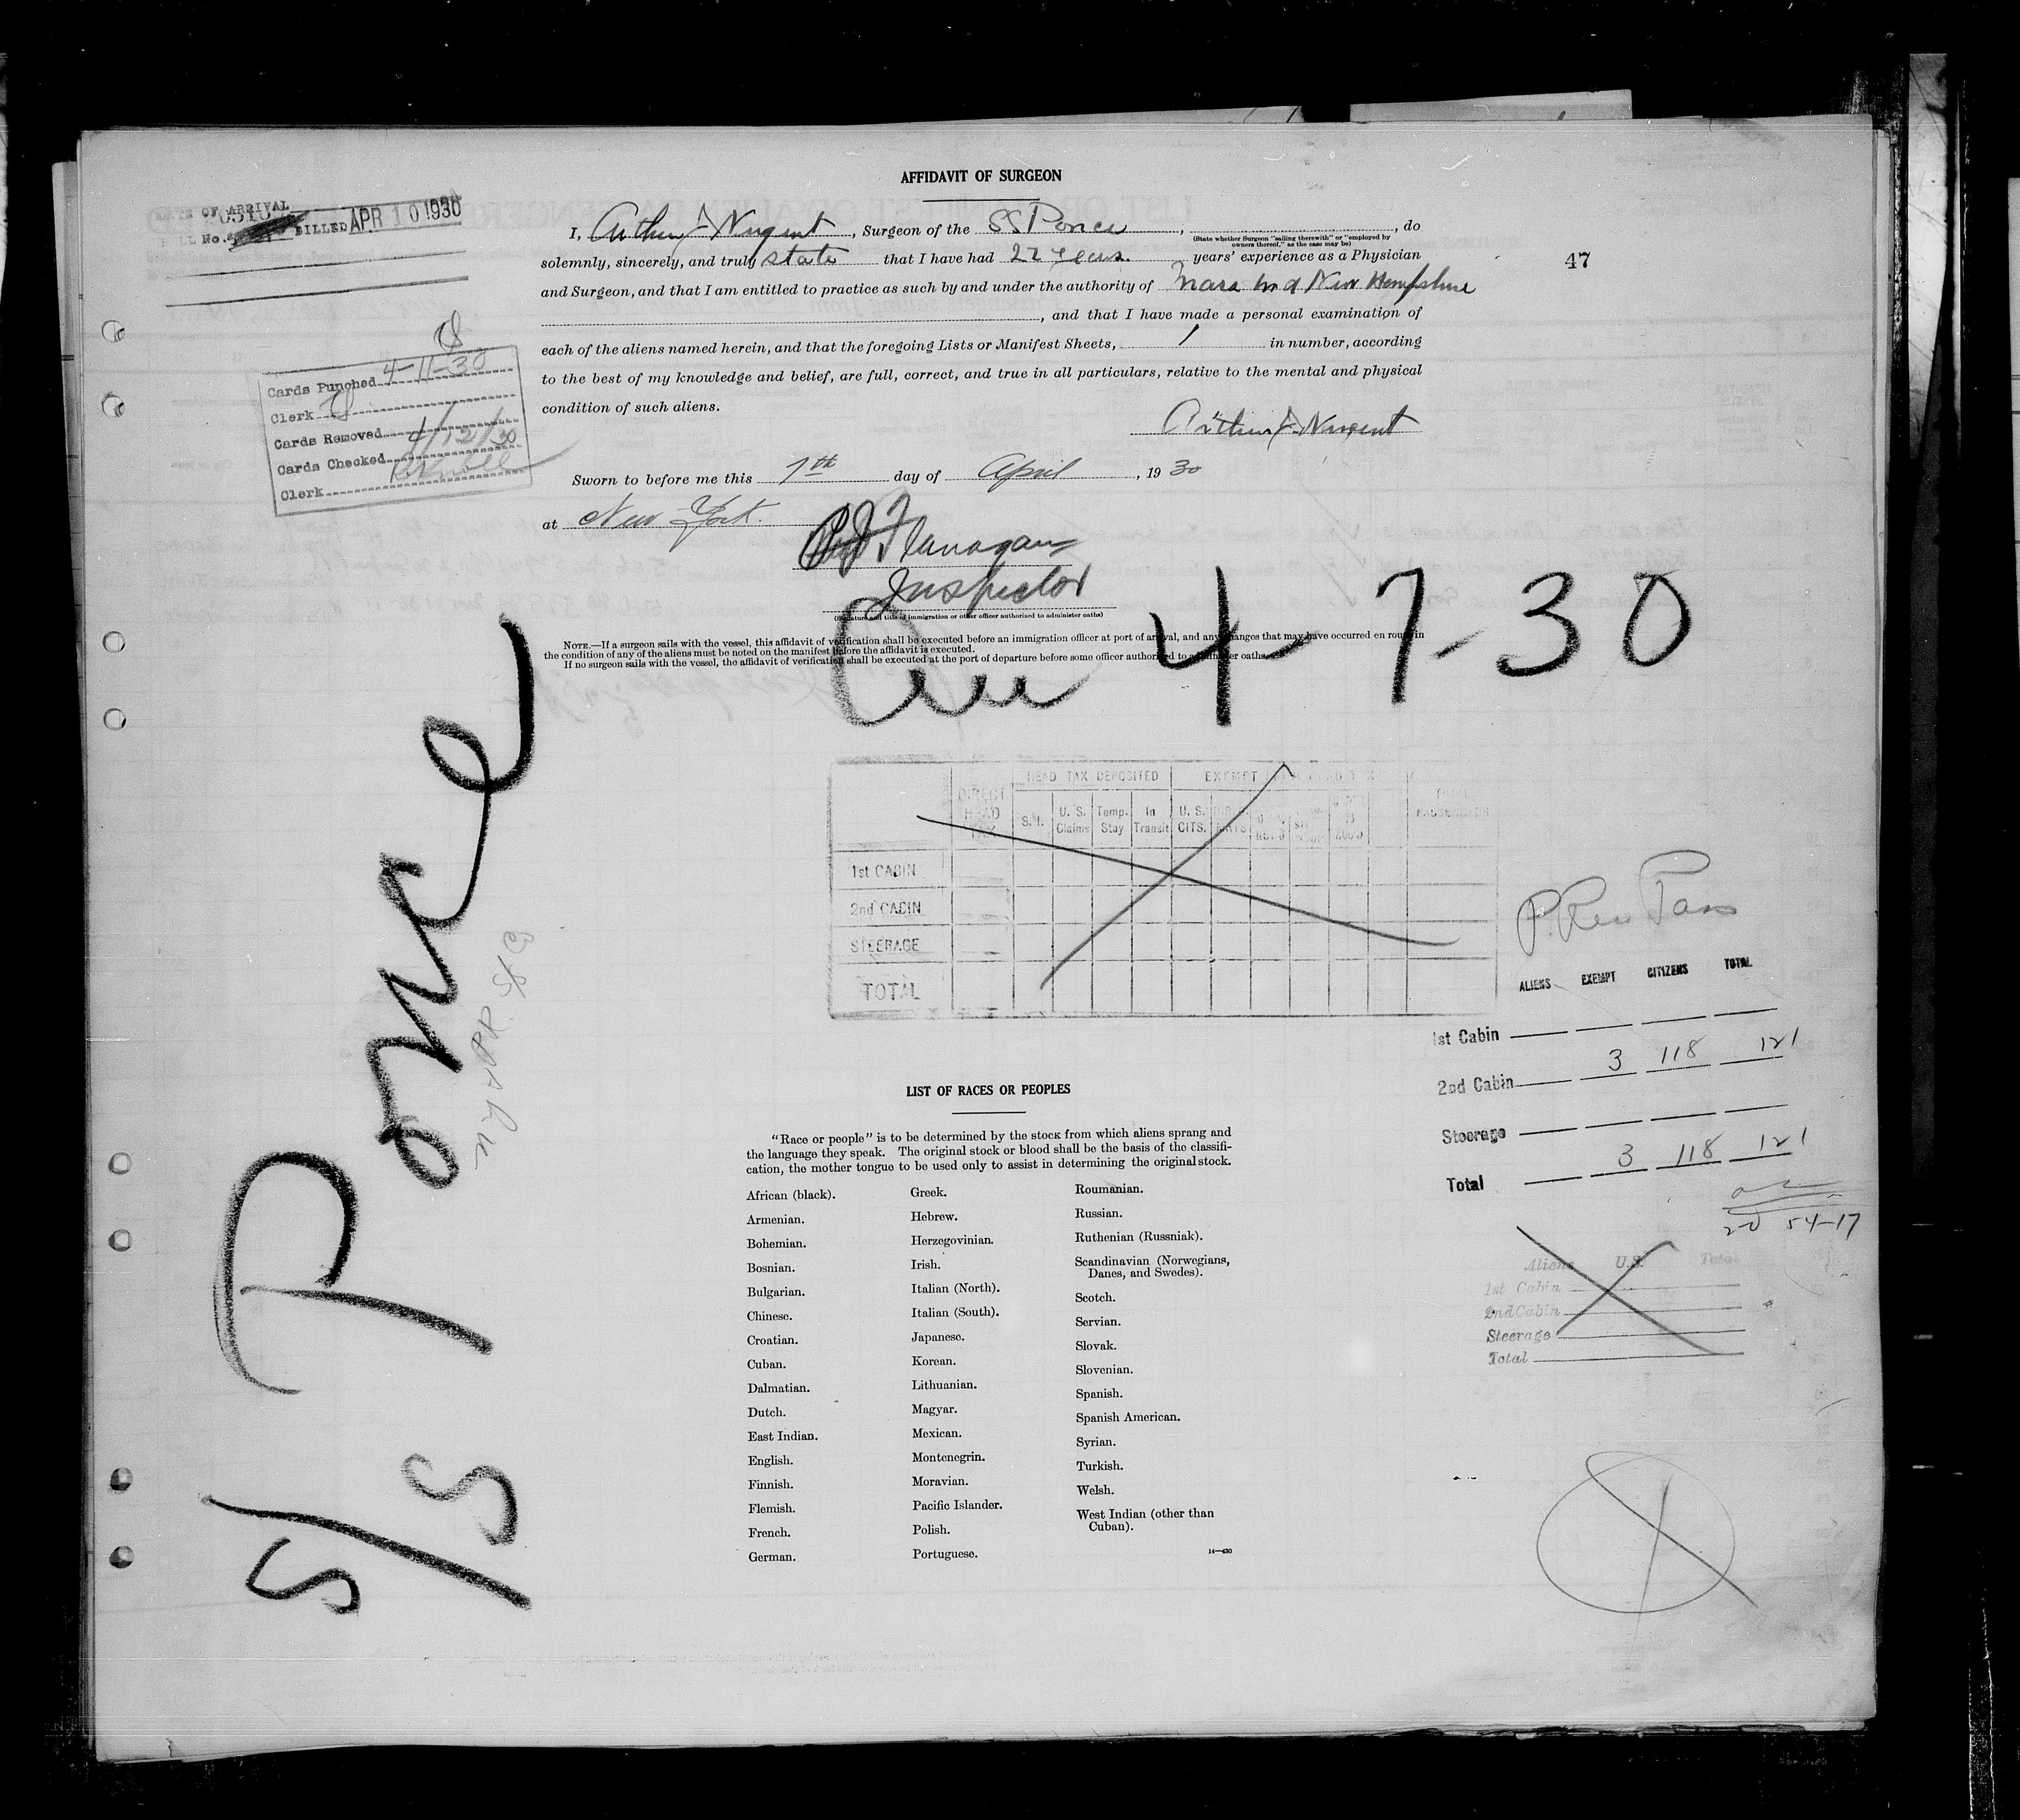 AFFIDAVIT OF SURGEON
DATE OF ARRIVAL
BILL No. BILLED APR 10 1930
I, Arthur J Nugent, Surgeon of the SS Ponce, , do
(State whether Surgeon "sailing therewith" or "employed by
owners thereof," as the case may be)
solemnly, sincerely, and truly state that I have had 22 years. years' experience as a Physician
47
and Surgeon, and that I am entitled to practice as such by and under the authority of Mass and New Hampshire
, and that I have made a personal examination of
each of the aliens named herein, and that the foregoing Lists or Manifest Sheets, 1 in number, according
to the best of my knowledge and belief, are full, correct, and true in all particulars, relative to the mental and physical
condition of such aliens.
Arthur J Nugent
Cards Punched 4-11-30
Clerk
Cards Removed 4/12/30
Cards Checked
Clerk
Sworn to before me this 7th day of April, 1930
at New York.
Flanagan
Inspector
(Signature and title of immigration or other officer authorized to administer oaths)
NOTE.—If a surgeon sails with the vessel, this affidavit of verification shall be executed before an immigration officer at port of arrival, and any changes that may have occurred en route in
the condition of any of the aliens must be noted on the manifest before the affidavit is executed.
If no surgeon sails with the vessel, the affidavit of verification shall be executed at the port of departure before some officer authorized to administer oaths.
4-7-30
S/S Ponce
NY & PR. S/S Co
HEAD TAX DEPOSITED EXEMPT
DIRECT HEAD TAX S.I. U. S. Claims Temp. Stay In Transit U. S. CITS.
PASSENGERS
1st CABIN
2nd CABIN
STEERAGE
TOTAL
ALIENS EXEMPT CITIZENS TOTAL
1st Cabin
2nd Cabin 3 118 121
Steerage
Total 3 118 121
54-17
Aliens U.S. Total
1st Cabin
2nd Cabin
Steerage
Total
LIST OF RACES OR PEOPLES
"Race or people" is to be determined by the stock from which aliens sprang and
the language they speak. The original stock or blood shall be the basis of the classifi-
cation, the mother tongue to be used only to assist in determining the original stock.
African (black).
Armenian.
Bohemian.
Bosnian.
Bulgarian.
Chinese.
Croatian.
Cuban.
Dalmatian.
Dutch.
East Indian.
English.
Finnish.
Flemish.
French.
German.
Greek.
Hebrew.
Herzegovinian.
Irish.
Italian (North).
Italian (South).
Japanese.
Korean.
Lithuanian.
Magyar.
Mexican.
Montenegrin.
Moravian.
Pacific Islander.
Polish.
Portuguese.
Roumanian.
Russian.
Ruthenian (Russniak).
Scandinavian (Norwegians,
Danes, and Swedes).
Scotch.
Servian.
Slovak.
Slovenian.
Spanish.
Spanish American.
Syrian.
Turkish.
Welsh.
West Indian (other than
Cuban).
14—430